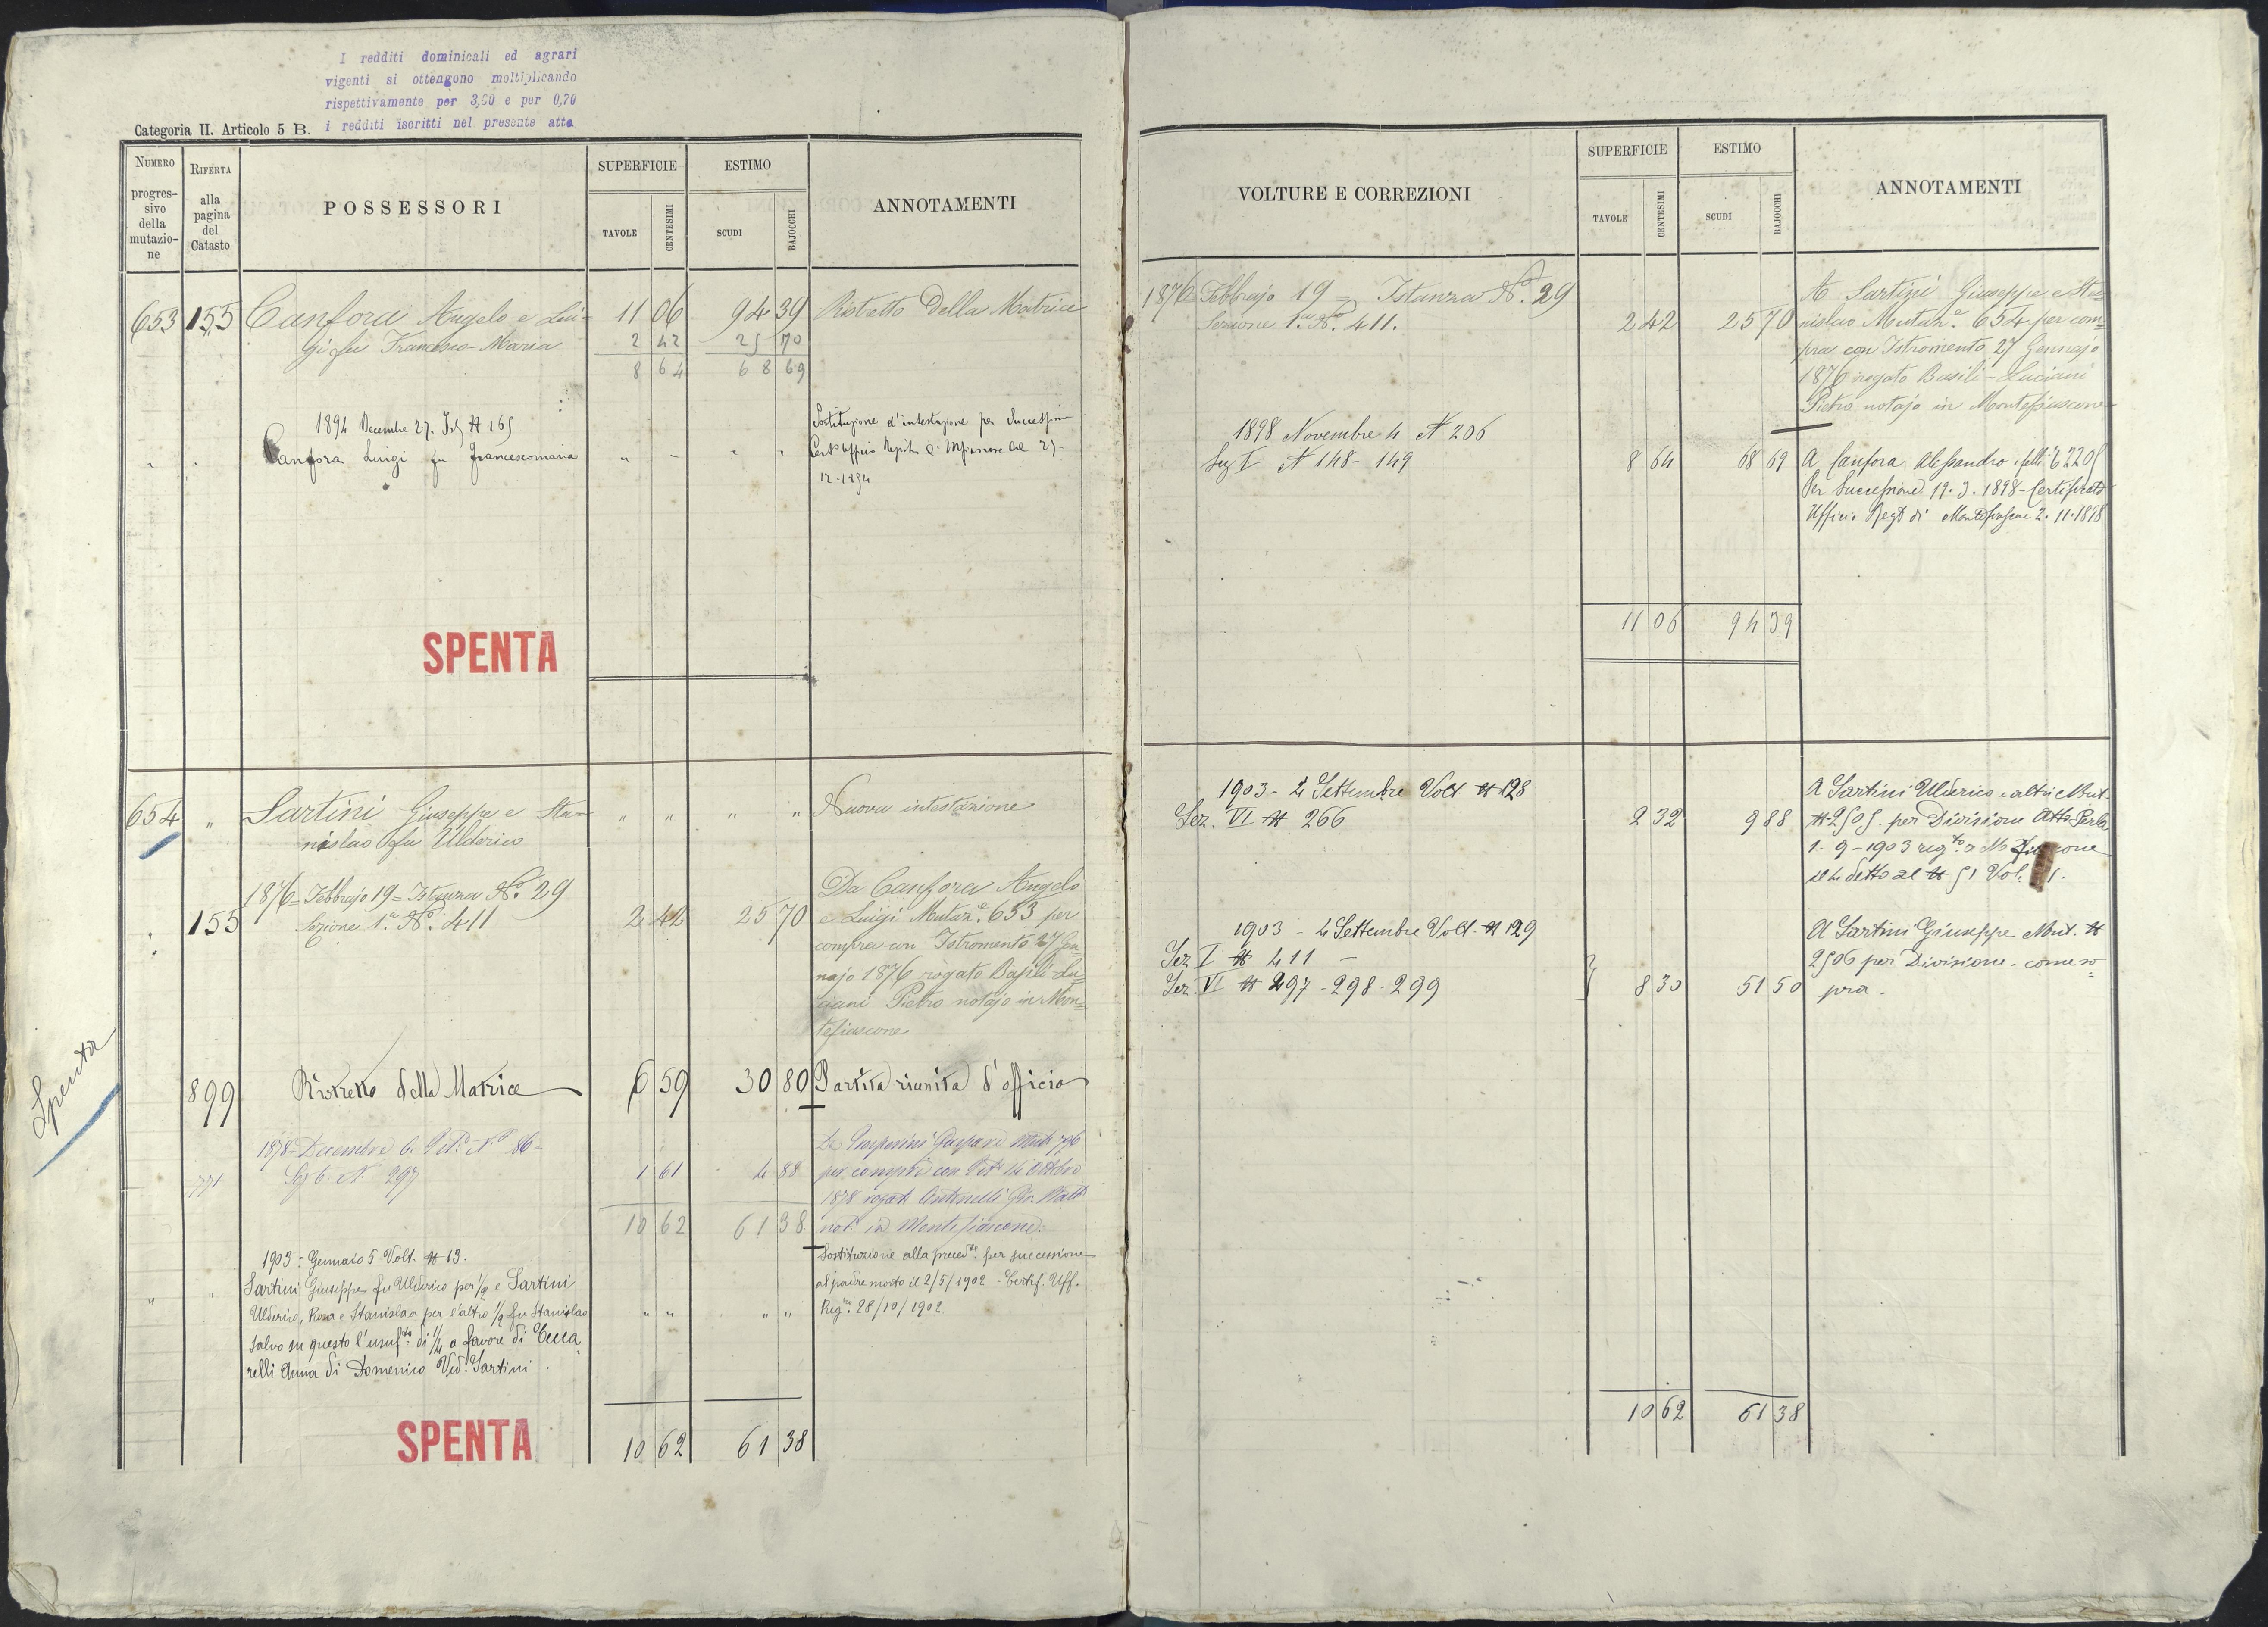 I redditi dominicali ed agrari
vigenti si ottengono moltiplicando
rispettivamente per 3,60 e per 0,70
i redditi iscritti nel presente atto
Categoria II. Articolo 5 B.
NUMERO progres-sivo della mutazio-ne
RIFERTA alla pagina del Catasto
POSSESSORI
SUPERFICIE
TAVOLE
CENTESIMI
ESTIMO
SCUDI
BAJOCCHI
ANNOTAMENTI
653 155 Canfora Angelo e Lui= 11 06 94 39 Ristretto della Matrice
gi fu Francesco-Maria 2 42 25 70
8 64 68 69
1894 Decembre 27.
Canfora Luigi fu Francescomaria
Sostituzione d'intestazione per Successione
12-1894
SPENTA
654 " Sartini Giuseppe e Sta= " " " " Nuova intestazione
nislao fu Ulderico
1876= Febbrajo 19= Istanza N.o 29
155 Sezione 1.a N.o 411 2 42 25 70
Da Canfora Angelo
e Luigi Mutaz.e 653 per
compra con Istromento 27 Gen=
najo 1876 rogato Basili-Lu=
ciani Pietro notajo in Mon=
tefiascone
Spenta
899 Ristretto della Matrice 6 59 30 80 Partita riunita d'officio
1878= Decembre 6. N.o 86-
Sez 6. N. 297 1 61 4 88
10 62 61 38
per compra con
1878 rogat. Antonelli
not. in Montefiascone.
1903 = Gennaio 5 Volt. N 13.
" " Sartini Giuseppe fu Ulderico per 1/2 e Sartini
Ulderico, Rosa e Stanislao per l'altro 1/2 fu Stanislao " " " "
salvo su questo l'usuf.to di 1/4 a favore di Cecca=
relli Anna di Domenico Ved. Sartini.
Sostituzione alla preced.te per successione
al padre morto il 2/5/1902 - Certif. Uff.
Reg.ro 28/10/1902
SPENTA
10 62 61 38
VOLTURE E CORREZIONI
SUPERFICIE
TAVOLE
CENTESIMI
ESTIMO
SCUDI
BAJOCCHI
ANNOTAMENTI
1876= Febbrajo 19= Istanza N.o 29
Sezione 1.a N.o 411. 2 42 25 70
A Sartini Giuseppe e Sta=
nislao Mutaz.e 654 per com=
pra con Istromento 27 Gennajo
1876 rogato Basili-Luciani
Pietro notajo in Montefiascone
1898 Novembre 4 N 206
Sez I N 148-149 8 64 68 69
A Canfora Alessandro
Per Successione 19.3.1898-Certificato
Ufficio Reg di Montefiascone 2.11.1898
11 06 94 39
1903 - 4 Settembre Volt. N 128
Sez. VI N 266 2 32 9 88
A Sartini Ulderico e altri Mut.
N 2505. per Divisione Atto
1-9-1903 reg.to a
il 4 detto al N 51 Vol.
1903 - 4 Settembre Volt. N 129
Sez I N 411 -
Sez. VI N 297-298-299 8 30 51 50
A Sartini Giuseppe Mut. N
2506 per Divisione. come so=
pra.
10 62 61 38